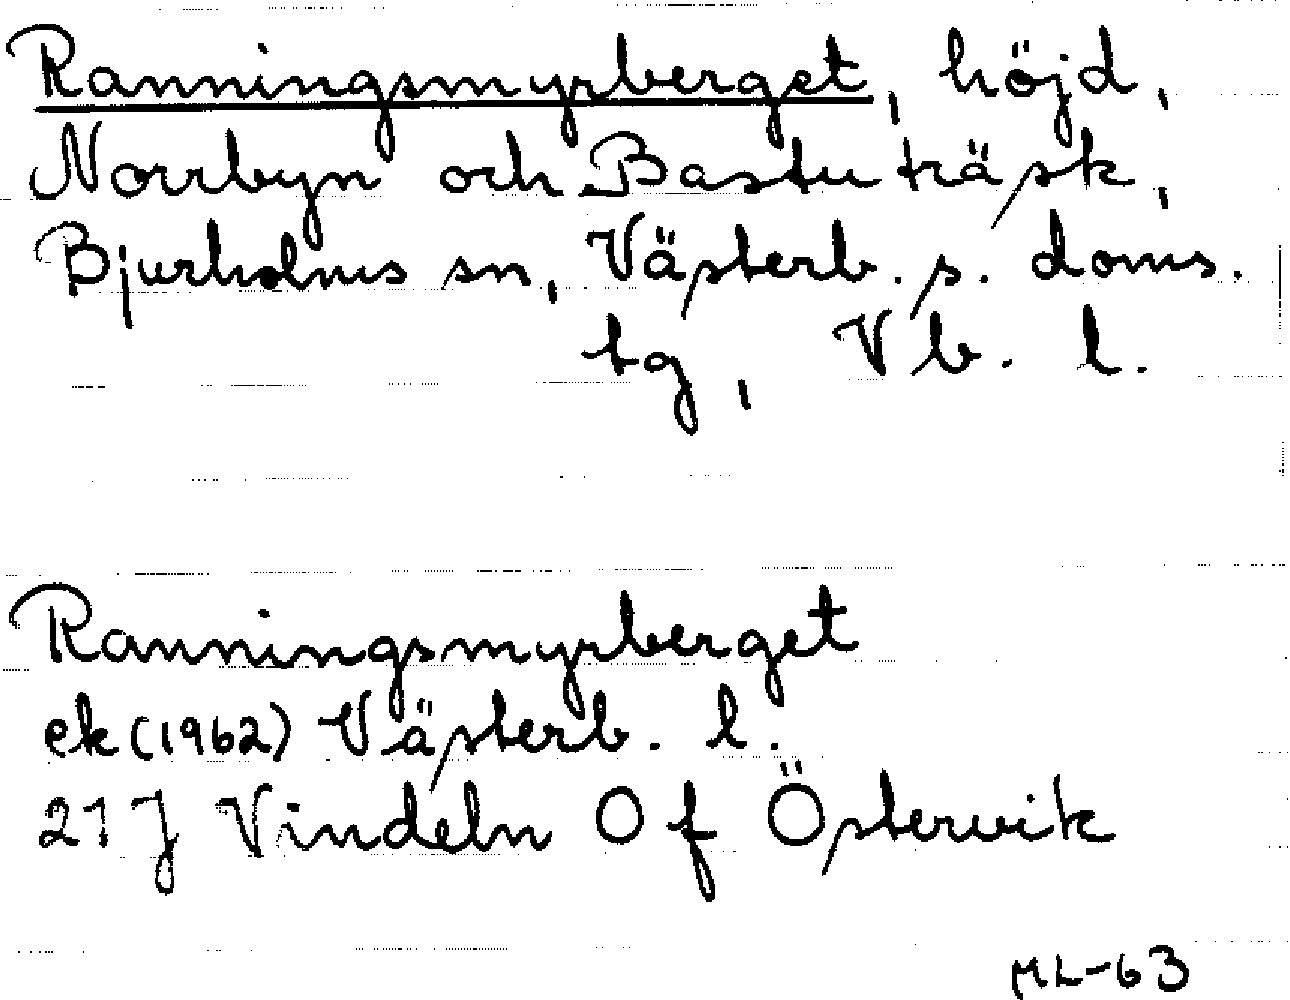 Ranningsmyrberget, höjd,
Norrbyn och Bastuträsk,
Bjurholms sn, Västerb. s. doms.
tg, Vb. l.
Ranningsmyrberget
ek (1962) Västerb. l.
21 J Vindeln O f Östervik
ML-63